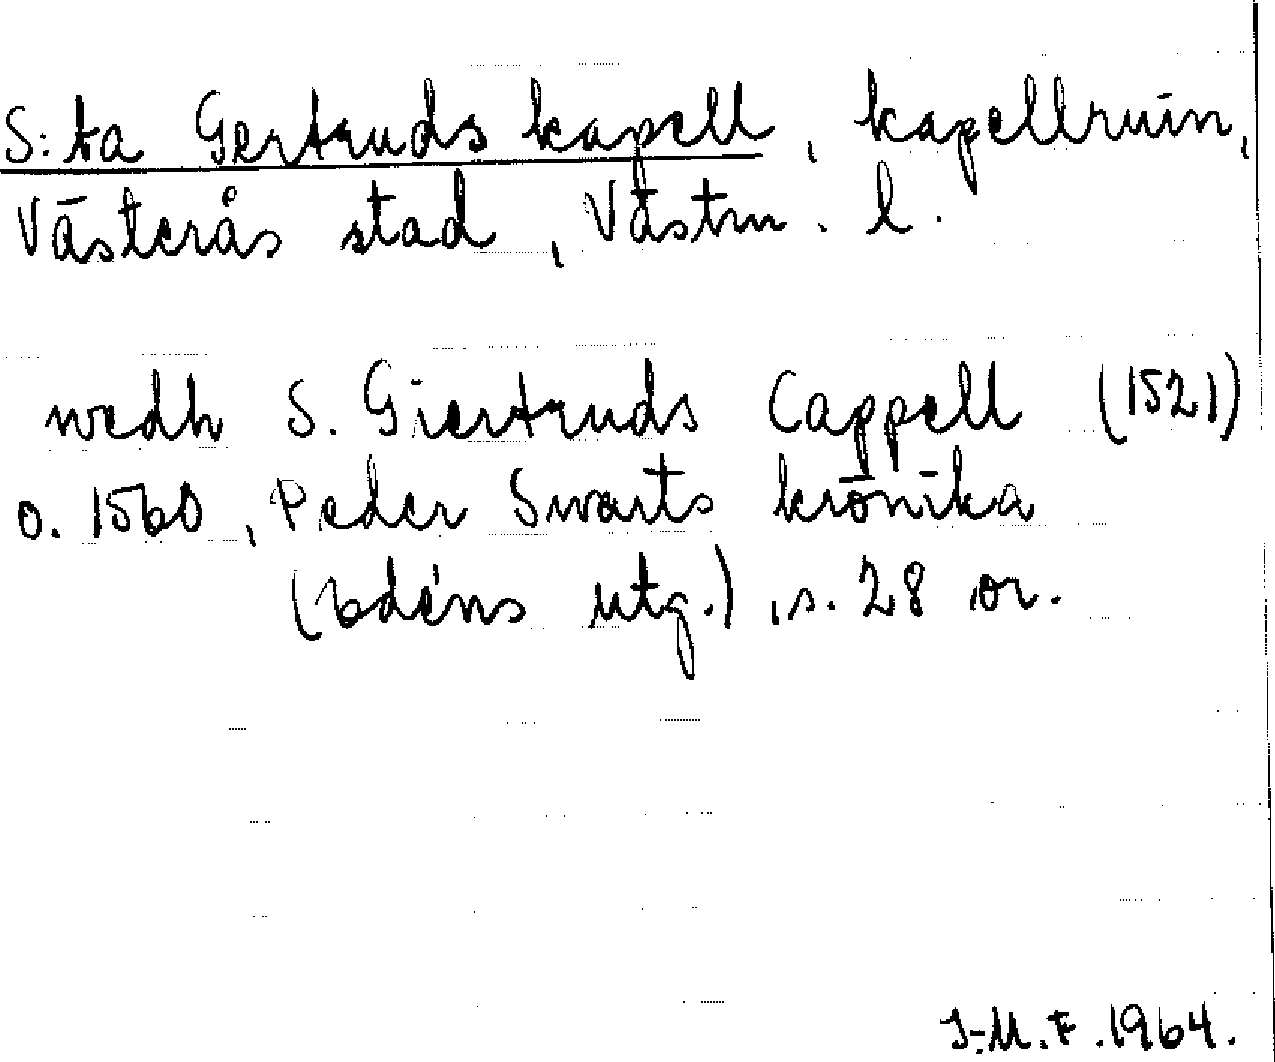 S:ta Gertruds kapell, kapellruin,
Västerås stad, Västm. l.
wedh S. Giertruds Cappell (1521)
o. 1560, Peder Swarts krönika
(Edéns utg.), s. 28 or.
I-M.F. 1964.